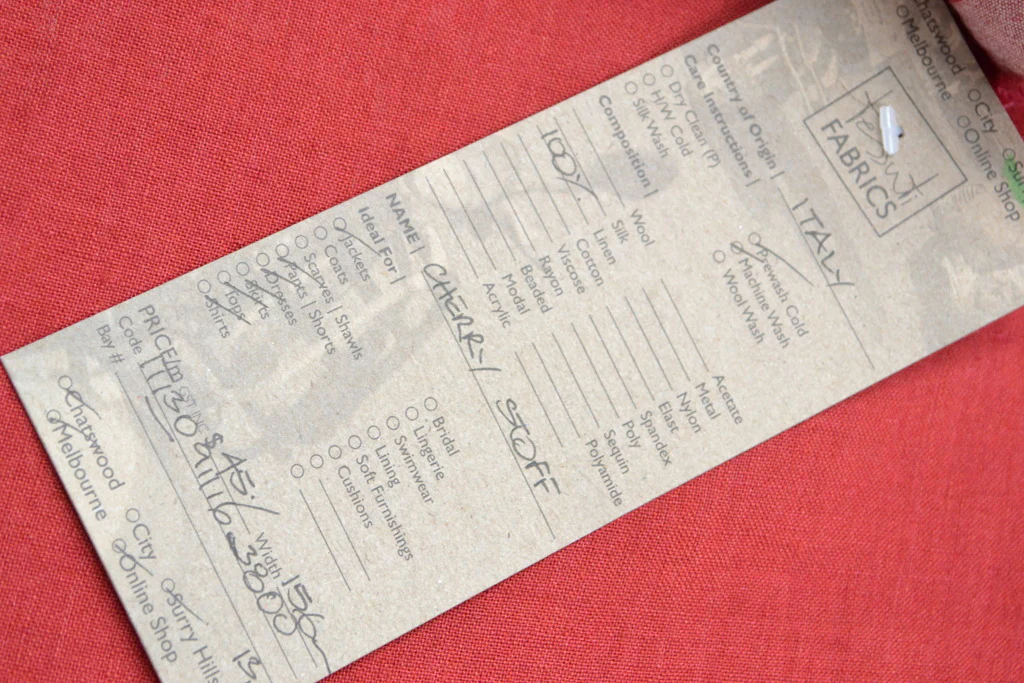 hatswood City Sur
Melbourne Online Shop
Tessuti
FABRICS
Country of Origin | ITALY
Care Instructions |
Dry Clean (P) Prewash Cold
H/W Cold Machine Wash
Silk Wash Wool Wash
Composition |
Wool Acetate
Silk Metal
100% Linen Nylon
Cotton Elast
Viscose Spandex
Rayon Poly
Beaded Sequin
Modal Polyamide
Acrylic
NAME | CHERRY STOFF
Ideal For |
Jackets Bridal
Coats Lingerie
Scarves | Shawls Swimwear
Pants | Shorts Lining
Dresses Soft Furnishings
Skirts Cushions
Tops
Shirts
PRICE/m $45.- Width 150cm
Code
Bay #
Chatswood City Surry Hills
Melbourne Online Shop